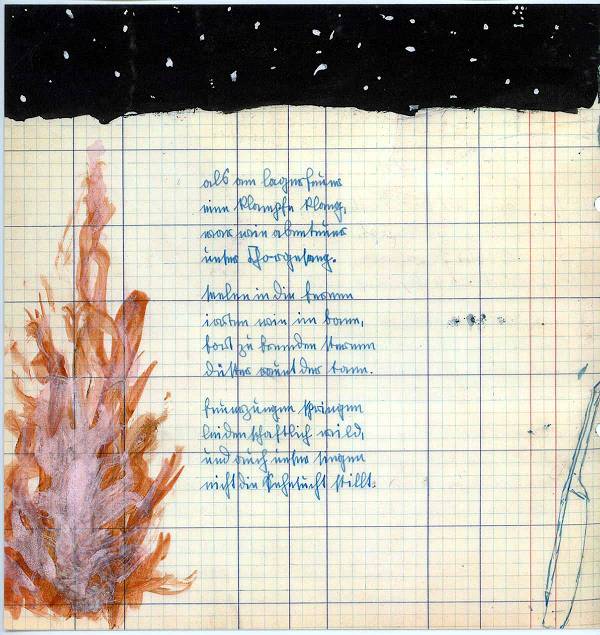 als am lagerfeuer
eine klampfe klang,
war wie abenteuer
unser Chorgesang.
seelen in die fernen
irrten wie im bann,
fort zu fremden sternen
düster raunt der tann.
feuerzungen springen
leidenschaftlich wild,
und auch unser singen
nicht die Sehnsucht stillt.